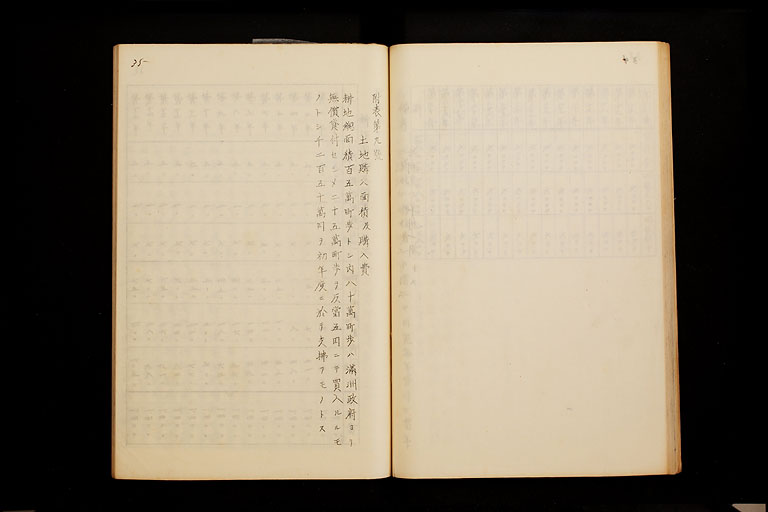 附表第九號
土地購入面積及購入費
耕地總面積百五萬町歩トシ内八十萬町歩ハ滿洲政府ヨリ
無償貸付セシメ二十五萬町歩ヲ反當五円ニテ買入ルルモ
ノトシ千二百五十萬円ヲ初年度ニ於テ支拂フモノトス
35